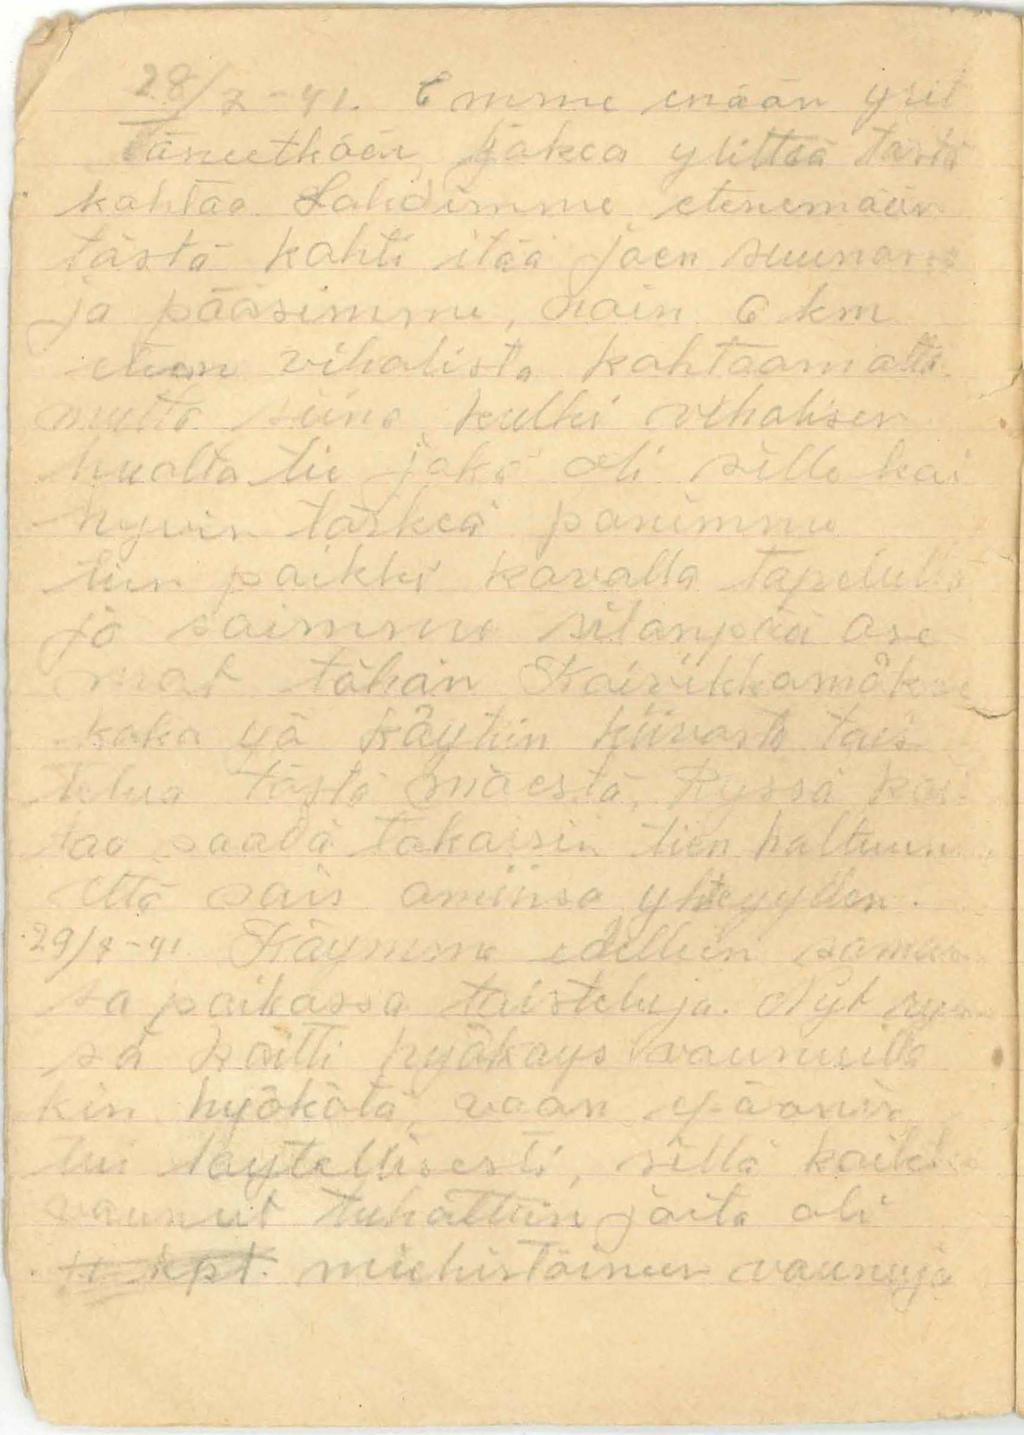 28/8-41. Emme enään yrit
täneetkään jokea ylittää tästä
kohtaa Lahdimme etenemään
tästä kohti itää joen suunna
ja pääsimme, noin 6 km
eteen vihalista kohtaamatta
mutta siinä kulki vihalisen
huolto tie joka oli sille kai
hyvin tärkeä panimme
tien poikki kovalla tapelulla
ja saimme sitanpää ase
mat tähän Koivikkomäk
koko yä käytiin kiivasta tais
telua tästä mäestä, Ryssä koi
taa saada takaisin tien haltuun
että sais omiinsa yhteyyden.
29/8-41 Käymme edelleen samas
sa paikassa taisteluja. Nyt rys
sä koitti hyökäys vaunuilla
kin hyökätä vaan epäonis
tui täytellisesti, sillä kaikki
vaunut tuhottiin joita oli
11 kpt. miehistöineen vaunuja